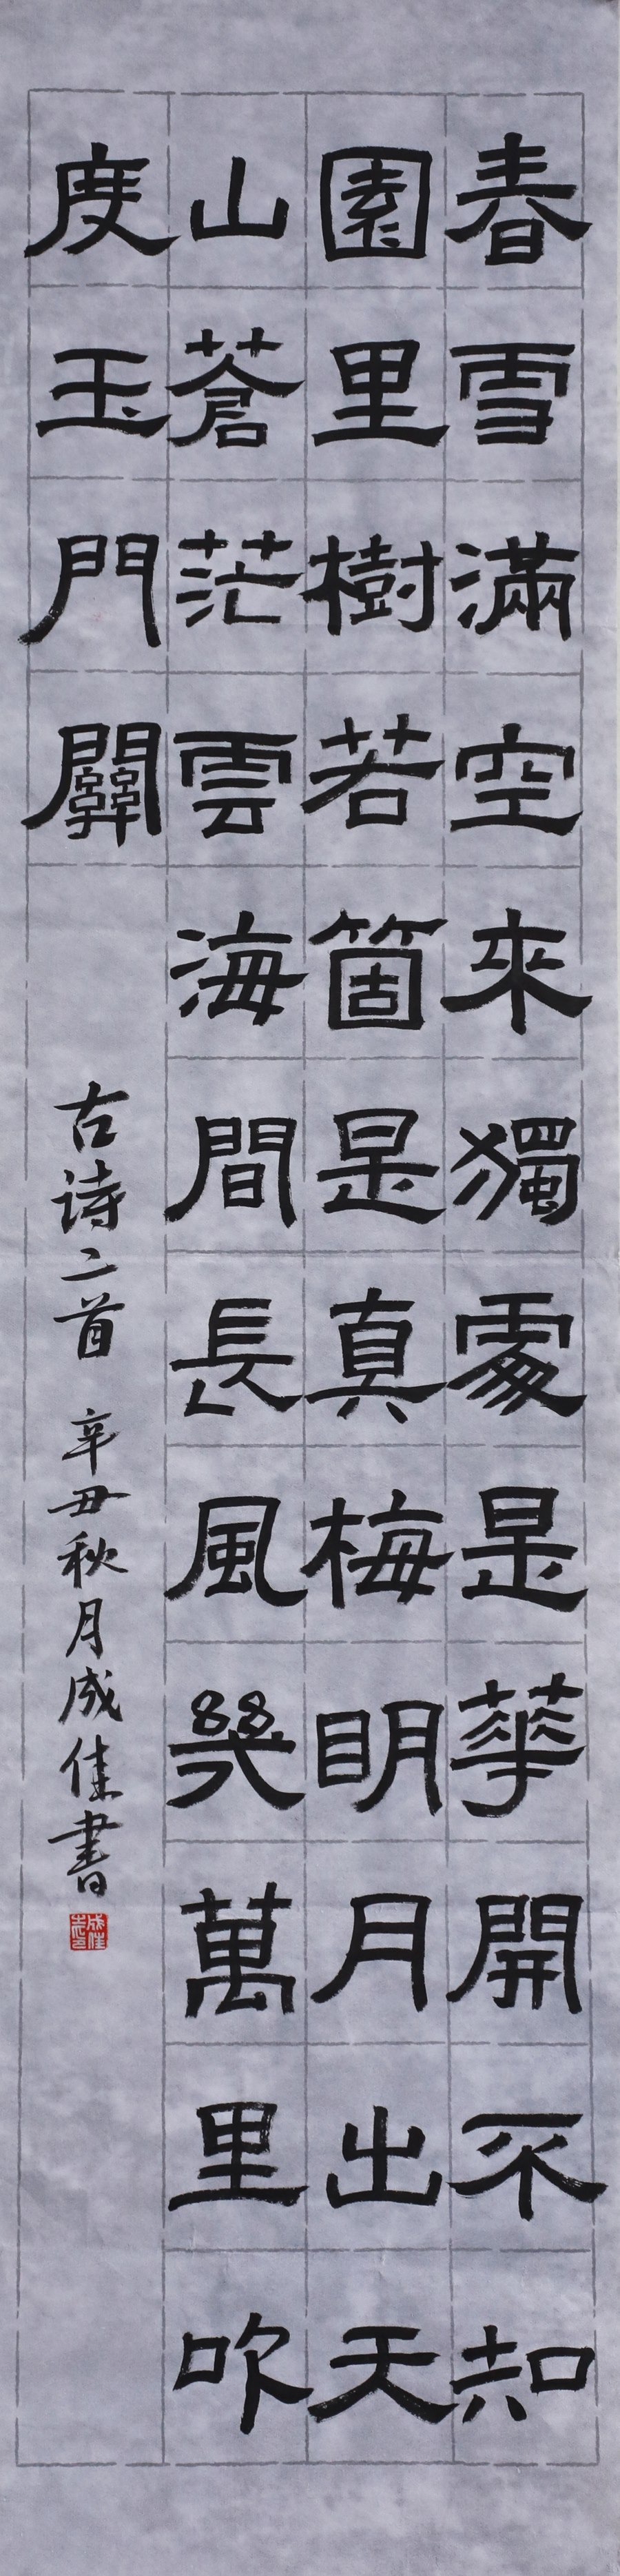 春雪滿空來獨處是華開不知
園里樹若箇是真梅明月出天
山蒼茫雲海間長風幾萬里吹
度玉門關
古诗二首 辛丑秋月成佳書